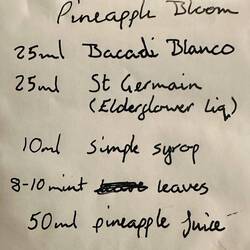 Pineapple Bloom
25ml Bacadi Blanco
25ml St Germain
(Elderflower Liq.)
10ml simple syrop
8-10 mint leaves
50ml pineapple juice